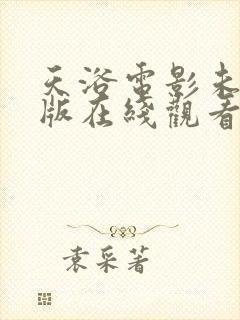 天浴電影未
版在綫觀看
袁采著